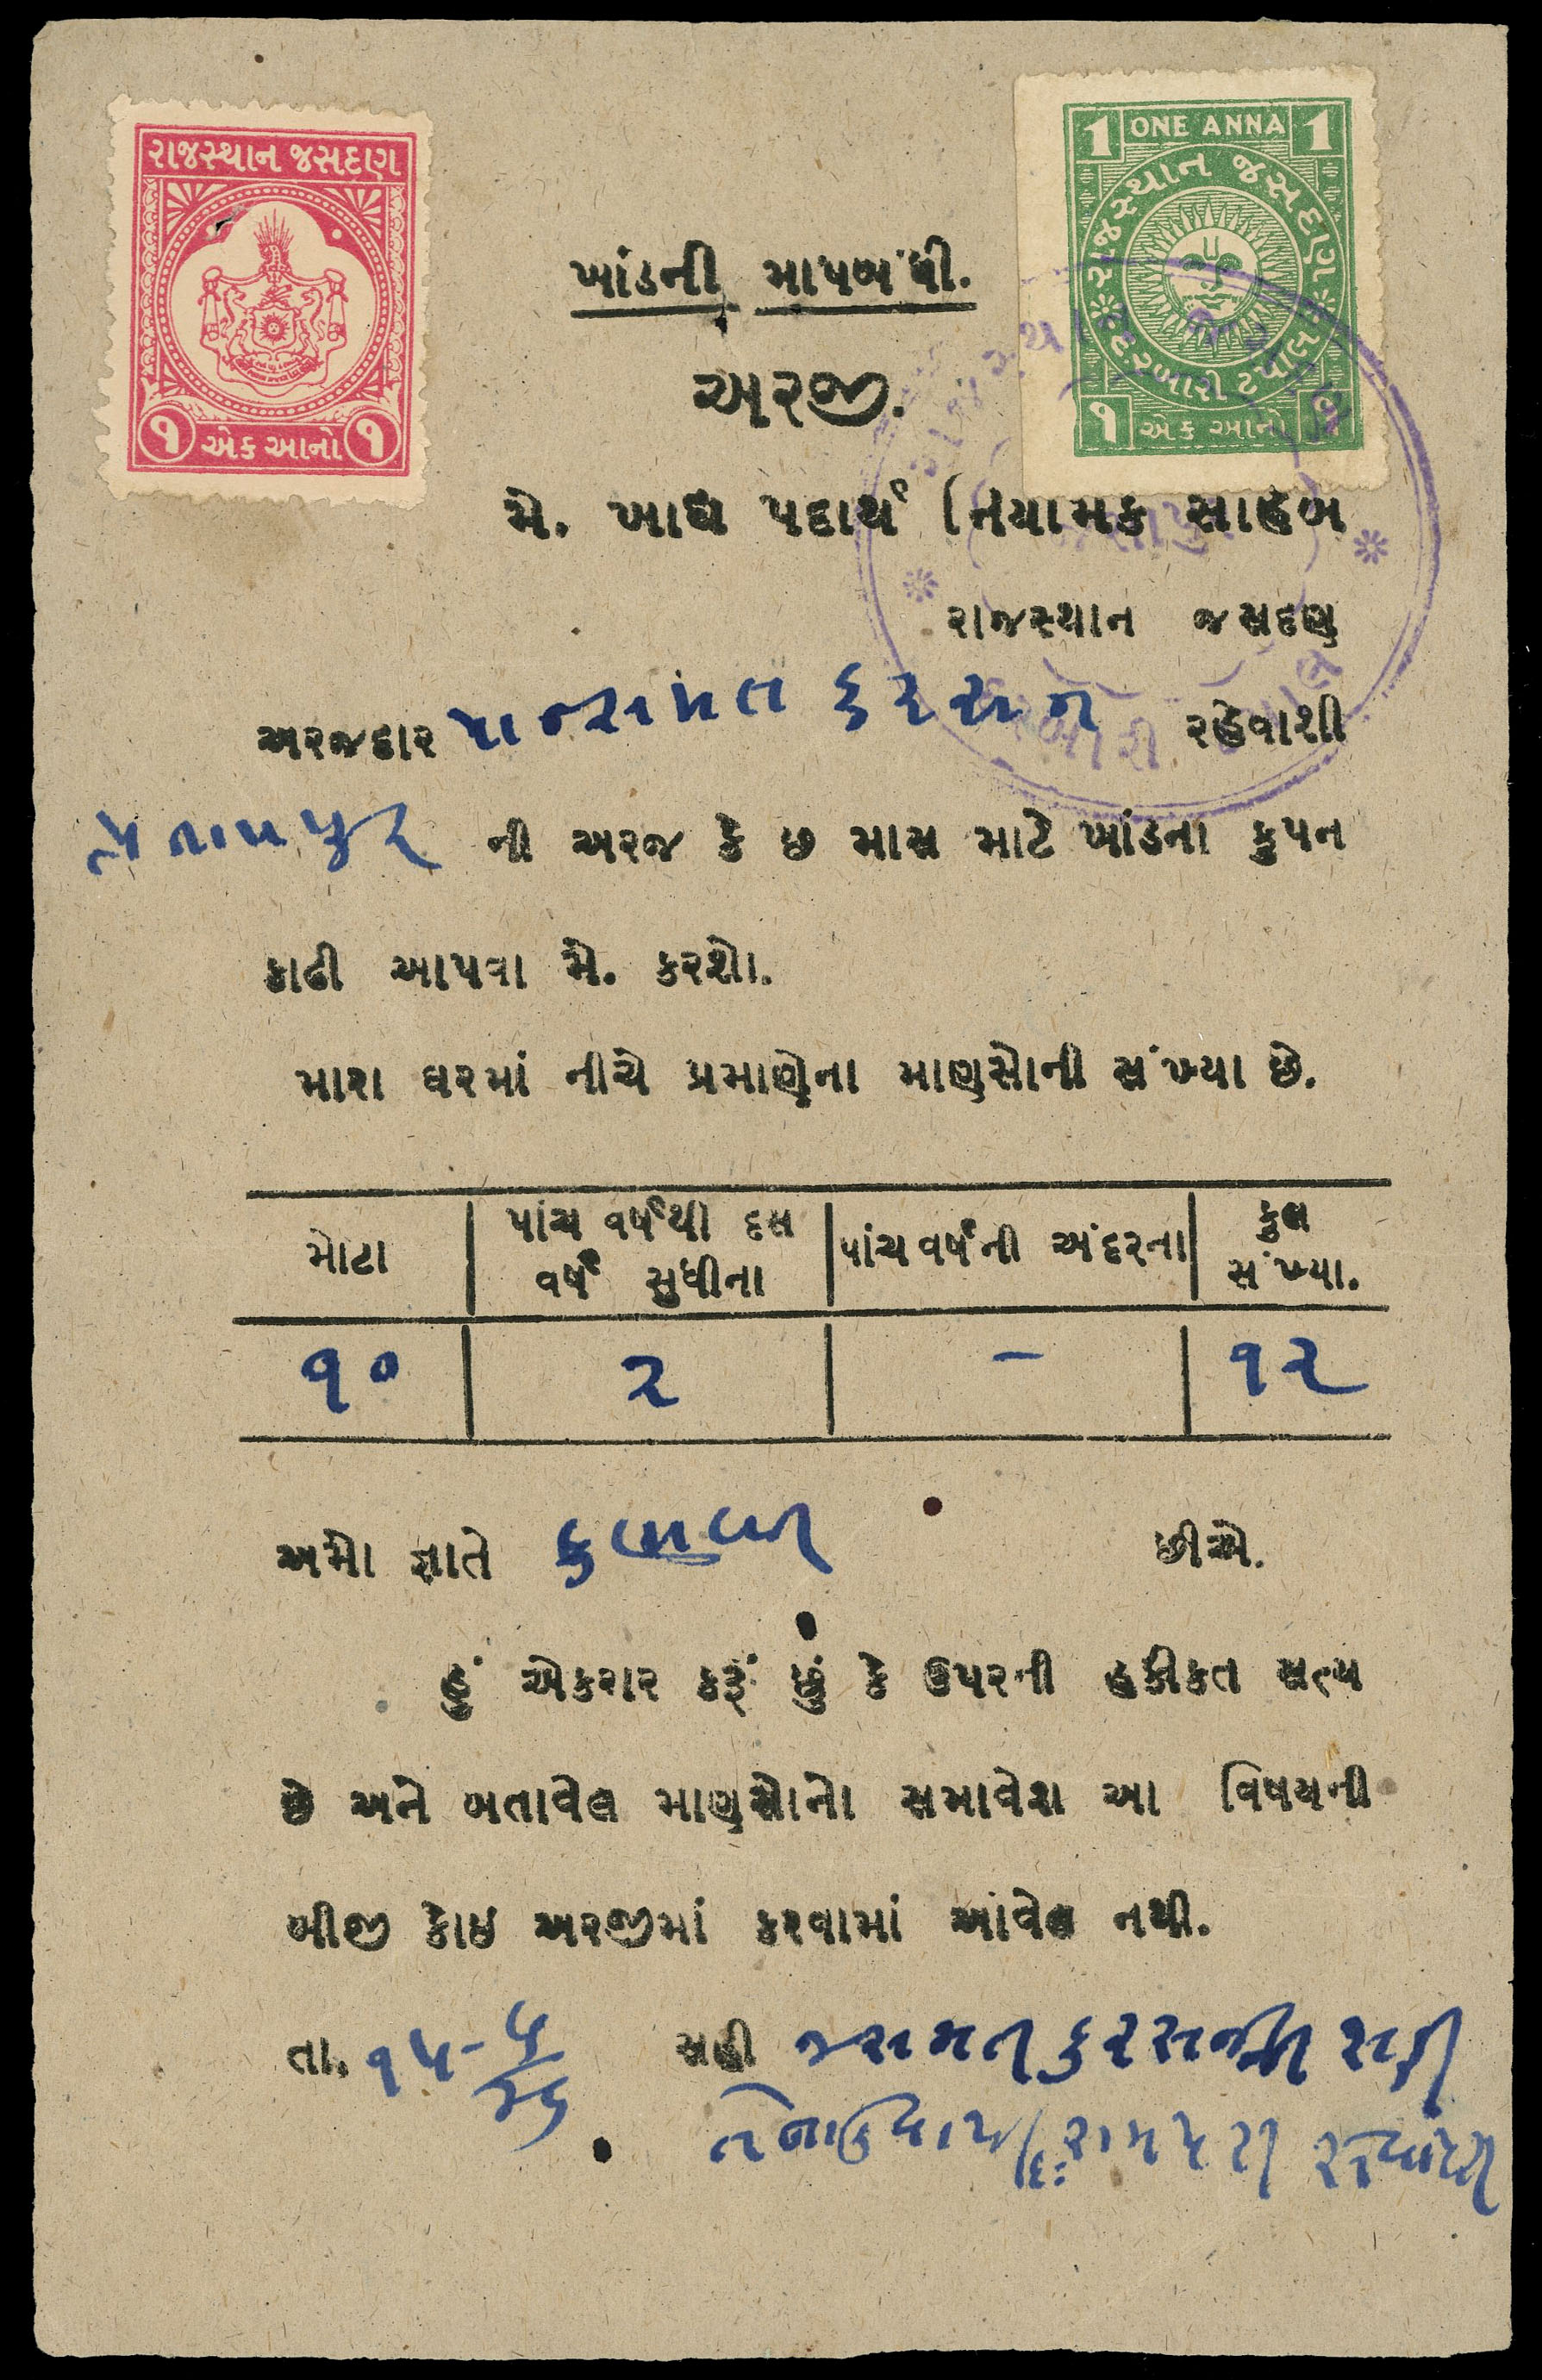 રાજસ્થાન જસદણ
૧ એક આનો ૧
1 ONE ANNA 1
રાજસ્થાન જસદણ
દરબારી ટપાલ
૧ એક આનો ૧
ખાંડની માપબંધી.
અરજી.
મે. ખાદ્ય પદાર્થ નિયામક સાહેબ
રાજસ્થાન જસદણ
અરજદાર કરસન રહેવાશી
ની અરજ કે છ માસ માટે ખાંડના કુપન
કાઢી આપવા મે. કરશો.
મારા ઘરમાં નીચે પ્રમાણેના માણસોની સંખ્યા છે.
મોટા | પાંચ વર્ષથી દસ વર્ષ સુધીના | પાંચ વર્ષની અંદરના | કુલ સંખ્યા.
૧૦ | ૨ | – | ૧૨
અમો જ્ઞાતે છીએ.
હું એકરાર કરૂં છું કે ઉપરની હકીકત સત્ય
છે અને બતાવેલ માણસોનો સમાવેશ આ વિષયની
બીજી કોઇ અરજીમાં કરવામાં આવેલ નથી.
તા. ૧૫-૫ સહી